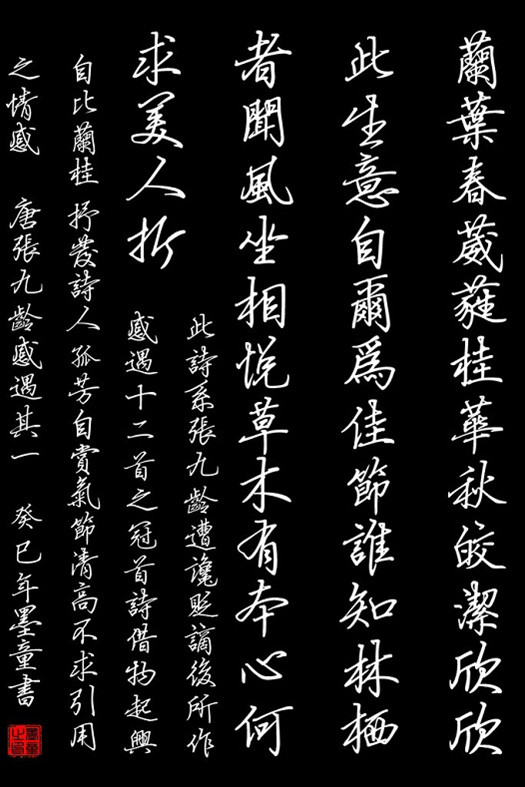 蘭葉春葳蕤桂華秋皎潔欣欣
此生意自爾爲佳節誰知林栖
者聞風坐相悅草木有本心何
求美人折
此詩系張九齡遭讒貶謫後所作
感遇十二首之冠首詩借物起興
自比蘭桂抒發詩人孤芳自賞氣節清高不求引用
之情感 唐張九齡感遇其一 癸巳年墨童書